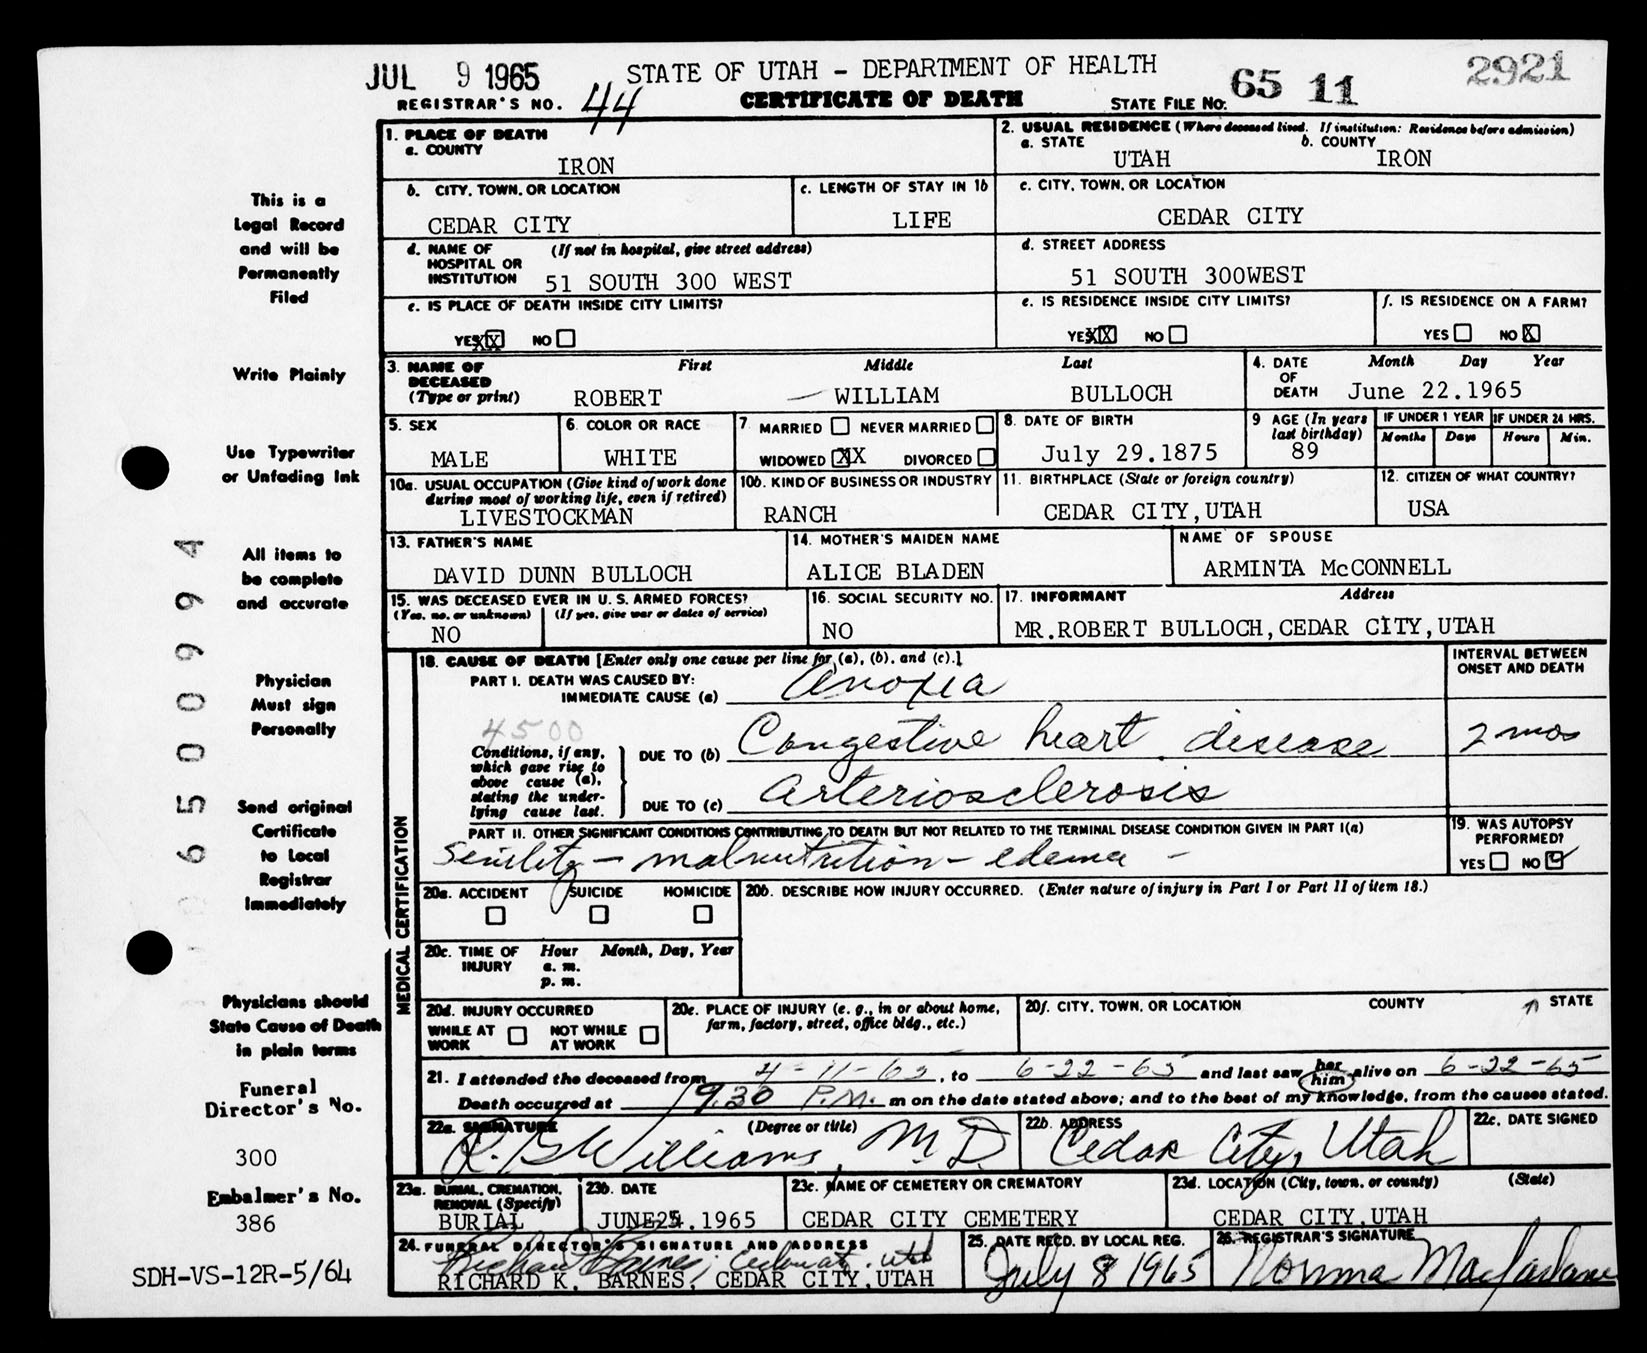 JUL 9 1965
STATE OF UTAH - DEPARTMENT OF HEALTH
65 11
2921
REGISTRAR'S NO. 44
CERTIFICATE OF DEATH
STATE FILE NO.
1. PLACE OF DEATH
a. COUNTY
IRON
2. USUAL RESIDENCE (Where deceased lived. If institution: Residence before admission)
a. STATE
UTAH
b. COUNTY
IRON
b. CITY, TOWN, OR LOCATION
CEDAR CITY
c. LENGTH OF STAY IN 1b
LIFE
c. CITY, TOWN, OR LOCATION
CEDAR CITY
d. NAME OF HOSPITAL OR INSTITUTION
(If not in hospital, give street address)
51 SOUTH 300 WEST
d. STREET ADDRESS
51 SOUTH 300WEST
e. IS PLACE OF DEATH INSIDE CITY LIMITS?
YES XX NO
e. IS RESIDENCE INSIDE CITY LIMITS?
YES XX NO
f. IS RESIDENCE ON A FARM?
YES NO X
3. NAME OF DECEASED
(Type or print)
First Middle Last
ROBERT — WILLIAM BULLOCH
4. DATE OF DEATH
Month Day Year
June 22.1965
5. SEX
MALE
6. COLOR OR RACE
WHITE
7. MARRIED NEVER MARRIED
WIDOWED XX DIVORCED
8. DATE OF BIRTH
July 29.1875
9 AGE (In years last birthday)
89
IF UNDER 1 YEAR
Months Days
IF UNDER 24 HRS.
Hours Min.
10a. USUAL OCCUPATION (Give kind of work done during most of working life, even if retired)
LIVESTOCKMAN
10b. KIND OF BUSINESS OR INDUSTRY
RANCH
11. BIRTHPLACE (State or foreign country)
CEDAR CITY,UTAH
12. CITIZEN OF WHAT COUNTRY?
USA
13. FATHER'S NAME
DAVID DUNN BULLOCH
14. MOTHER'S MAIDEN NAME
ALICE BLADEN
NAME OF SPOUSE
ARMINTA McCONNELL
15. WAS DECEASED EVER IN U. S. ARMED FORCES?
(Yes, no, or unknown) (If yes, give war or dates of service)
NO
16. SOCIAL SECURITY NO.
NO
17. INFORMANT Address
MR.ROBERT BULLOCH,CEDAR CITY,UTAH
MEDICAL CERTIFICATION
18. CAUSE OF DEATH [Enter only one cause per line for (a), (b), and (c).]
INTERVAL BETWEEN ONSET AND DEATH
PART I. DEATH WAS CAUSED BY:
IMMEDIATE CAUSE (a) Anoxia
4500
Conditions, if any, which gave rise to above cause (a), stating the underlying cause last.
DUE TO (b) Congestive heart disease 2 mos
DUE TO (c) arteriosclerosis
PART II. OTHER SIGNIFICANT CONDITIONS CONTRIBUTING TO DEATH BUT NOT RELATED TO THE TERMINAL DISEASE CONDITION GIVEN IN PART I(a)
Senility - malnutrition - edema -
19. WAS AUTOPSY PERFORMED?
YES NO
20a. ACCIDENT SUICIDE HOMICIDE
20b. DESCRIBE HOW INJURY OCCURRED. (Enter nature of injury in Part I or Part II of item 18.)
20c. TIME OF INJURY
Hour Month, Day, Year
a. m.
p. m.
20d. INJURY OCCURRED
WHILE AT WORK NOT WHILE AT WORK
20e. PLACE OF INJURY (e. g., in or about home, farm, factory, street, office bldg., etc.)
20f. CITY, TOWN, OR LOCATION COUNTY STATE
21. I attended the deceased from 4-11-65, to 6-22-65 and last saw her him alive on 6-22-65
Death occurred at 9.30 P.M. m on the date stated above; and to the best of my knowledge, from the causes stated.
22a. SIGNATURE (Degree or title)
R. G. Williams, M.D.
22b. ADDRESS
Cedar City, Utah
22c. DATE SIGNED
23a. BURIAL, CREMATION, REMOVAL (Specify)
BURIAL
23b. DATE
23c. NAME OF CEMETERY OR CREMATORY
CEDAR CITY CEMETERY
23d. LOCATION (City, town, or county) (State)
CEDAR CITY,UTAH
24. FUNERAL DIRECTOR'S SIGNATURE AND ADDRESS
RICHARD K. BARNES, CEDAR CITY,UTAH
25. DATE RECD. BY LOCAL REG.
July 8 1965
26. REGISTRAR'S SIGNATURE
Norma Macfarlane
This is a
Legal Record
and will be
Permanently
Filed
Write Plainly
Use Typewriter
or Unfading Ink
All items to
be complete
and accurate
Physician
Must sign
Personally
Send original
Certificate
to Local
Registrar
Immediately
Physicians should
State Cause of Death
in plain terms
Funeral
Director's No.
300
Embalmer's No.
386
SDH-VS-12R-5/64